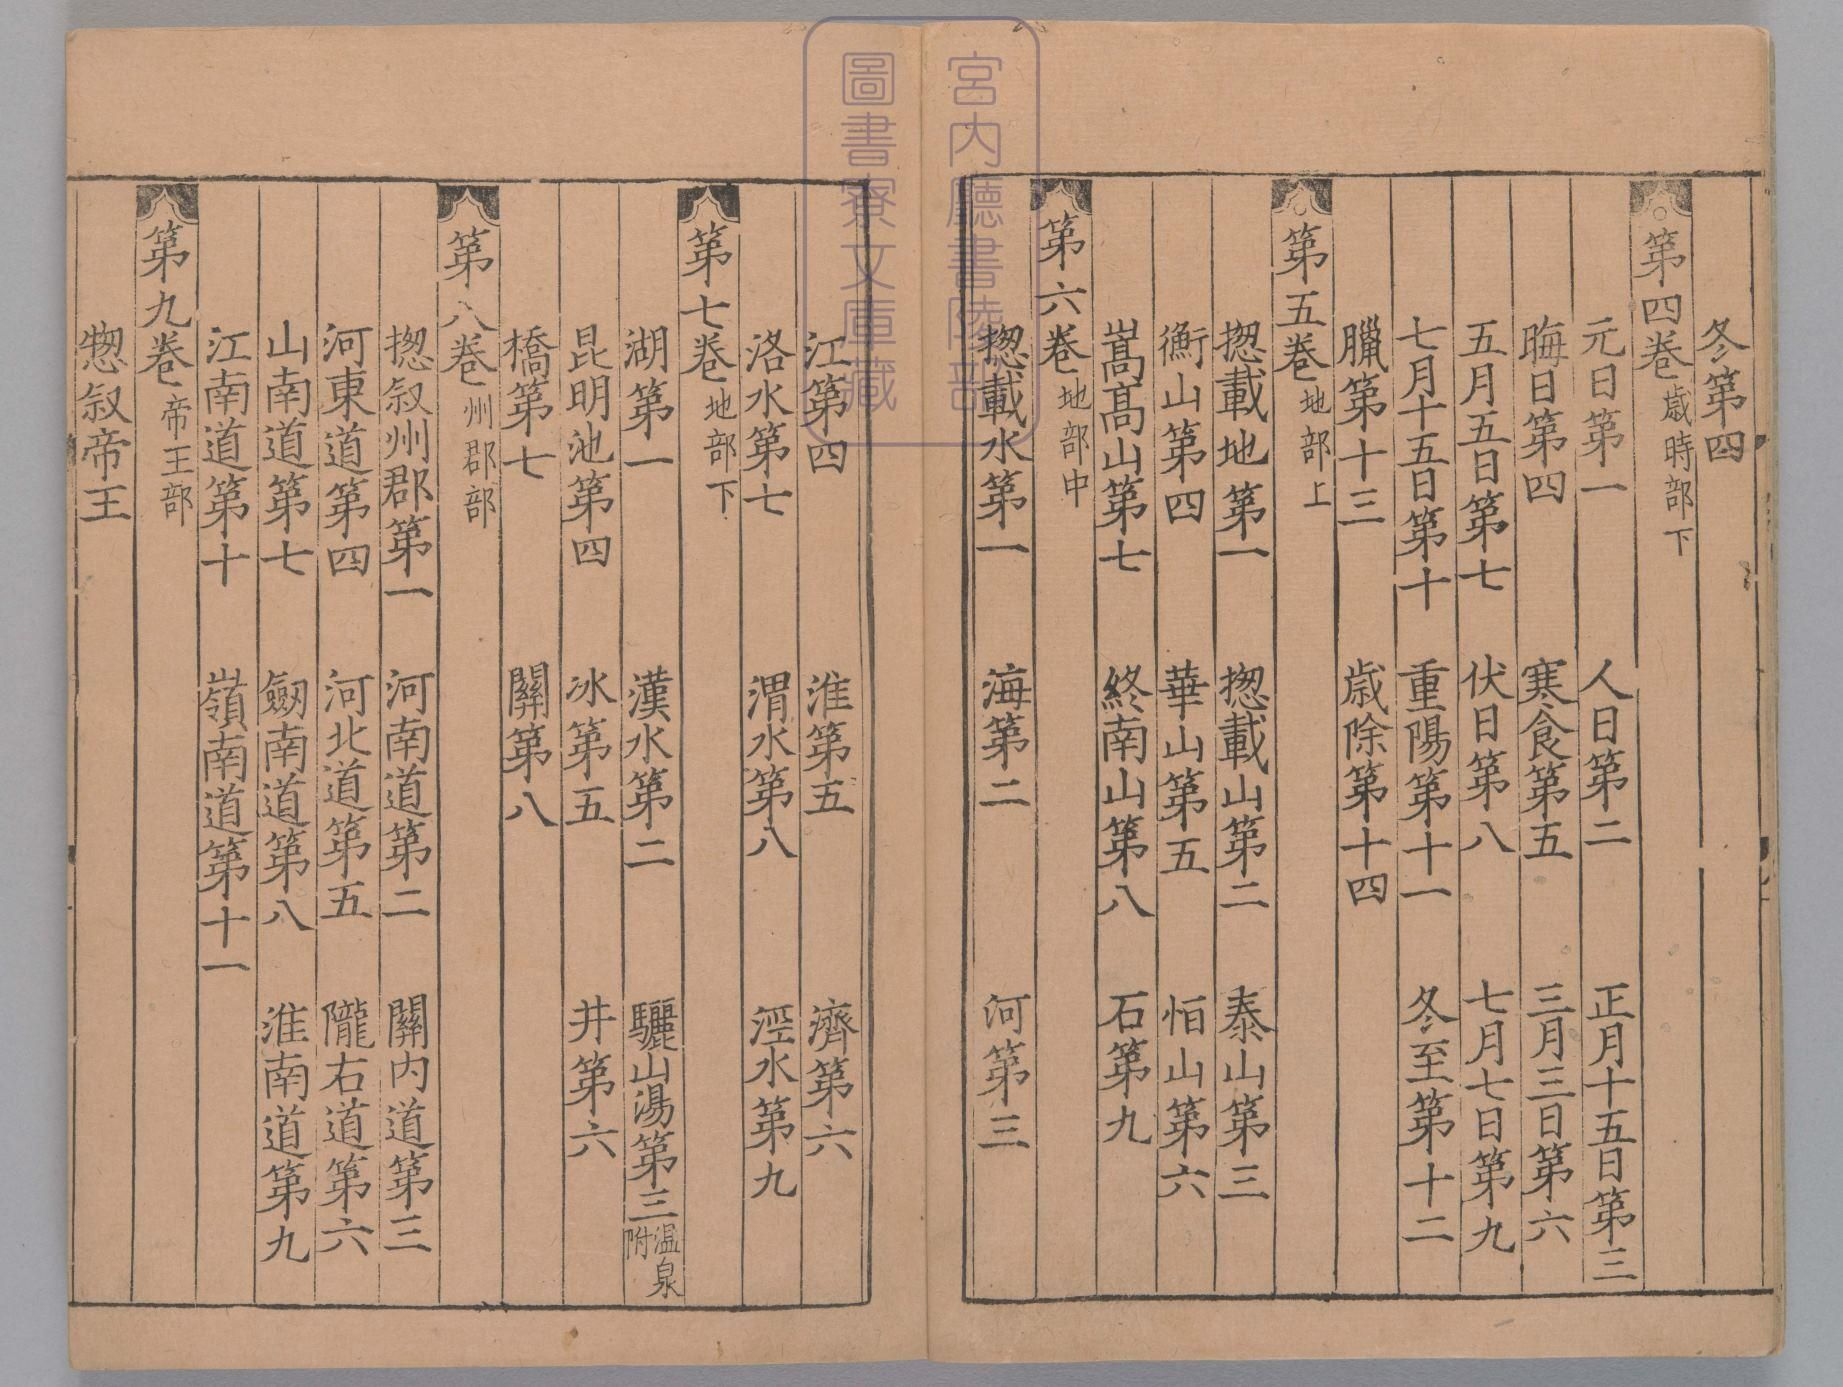 冬第四
第四卷 歳時部下
元日第一 人日第二 正月十五日第三
晦日第四 寒食第五 三月三日第六
五月五日第七 伏日第八 七月七日第九
七月十五日第十 重陽第十一 冬至第十二
臘第十三 歳除第十四
第五卷 地部上
揔載地第一 揔載山第二 泰山第三
衡山第四 華山第五 恒山第六
嵩高山第七 終南山第八 石第九
第六卷 地部中
揔載水第一 海第二 河第三
江第四 淮第五 濟第六
洛水第七 渭水第八 涇水第九
第七卷 地部下
湖第一 漢水第二 驪山湯第三 温泉附
昆明池第四 冰第五 井第六
橋第七 關第八
第八卷 州郡部
揔叙州郡第一 河南道第二 關内道第三
河東道第四 河北道第五 隴右道第六
山南道第七 劒南道第八 淮南道第九
江南道第十 嶺南道第十一
第九卷 帝王部
揔叙帝王
宮内廳書陵部
圖書寮文庫藏